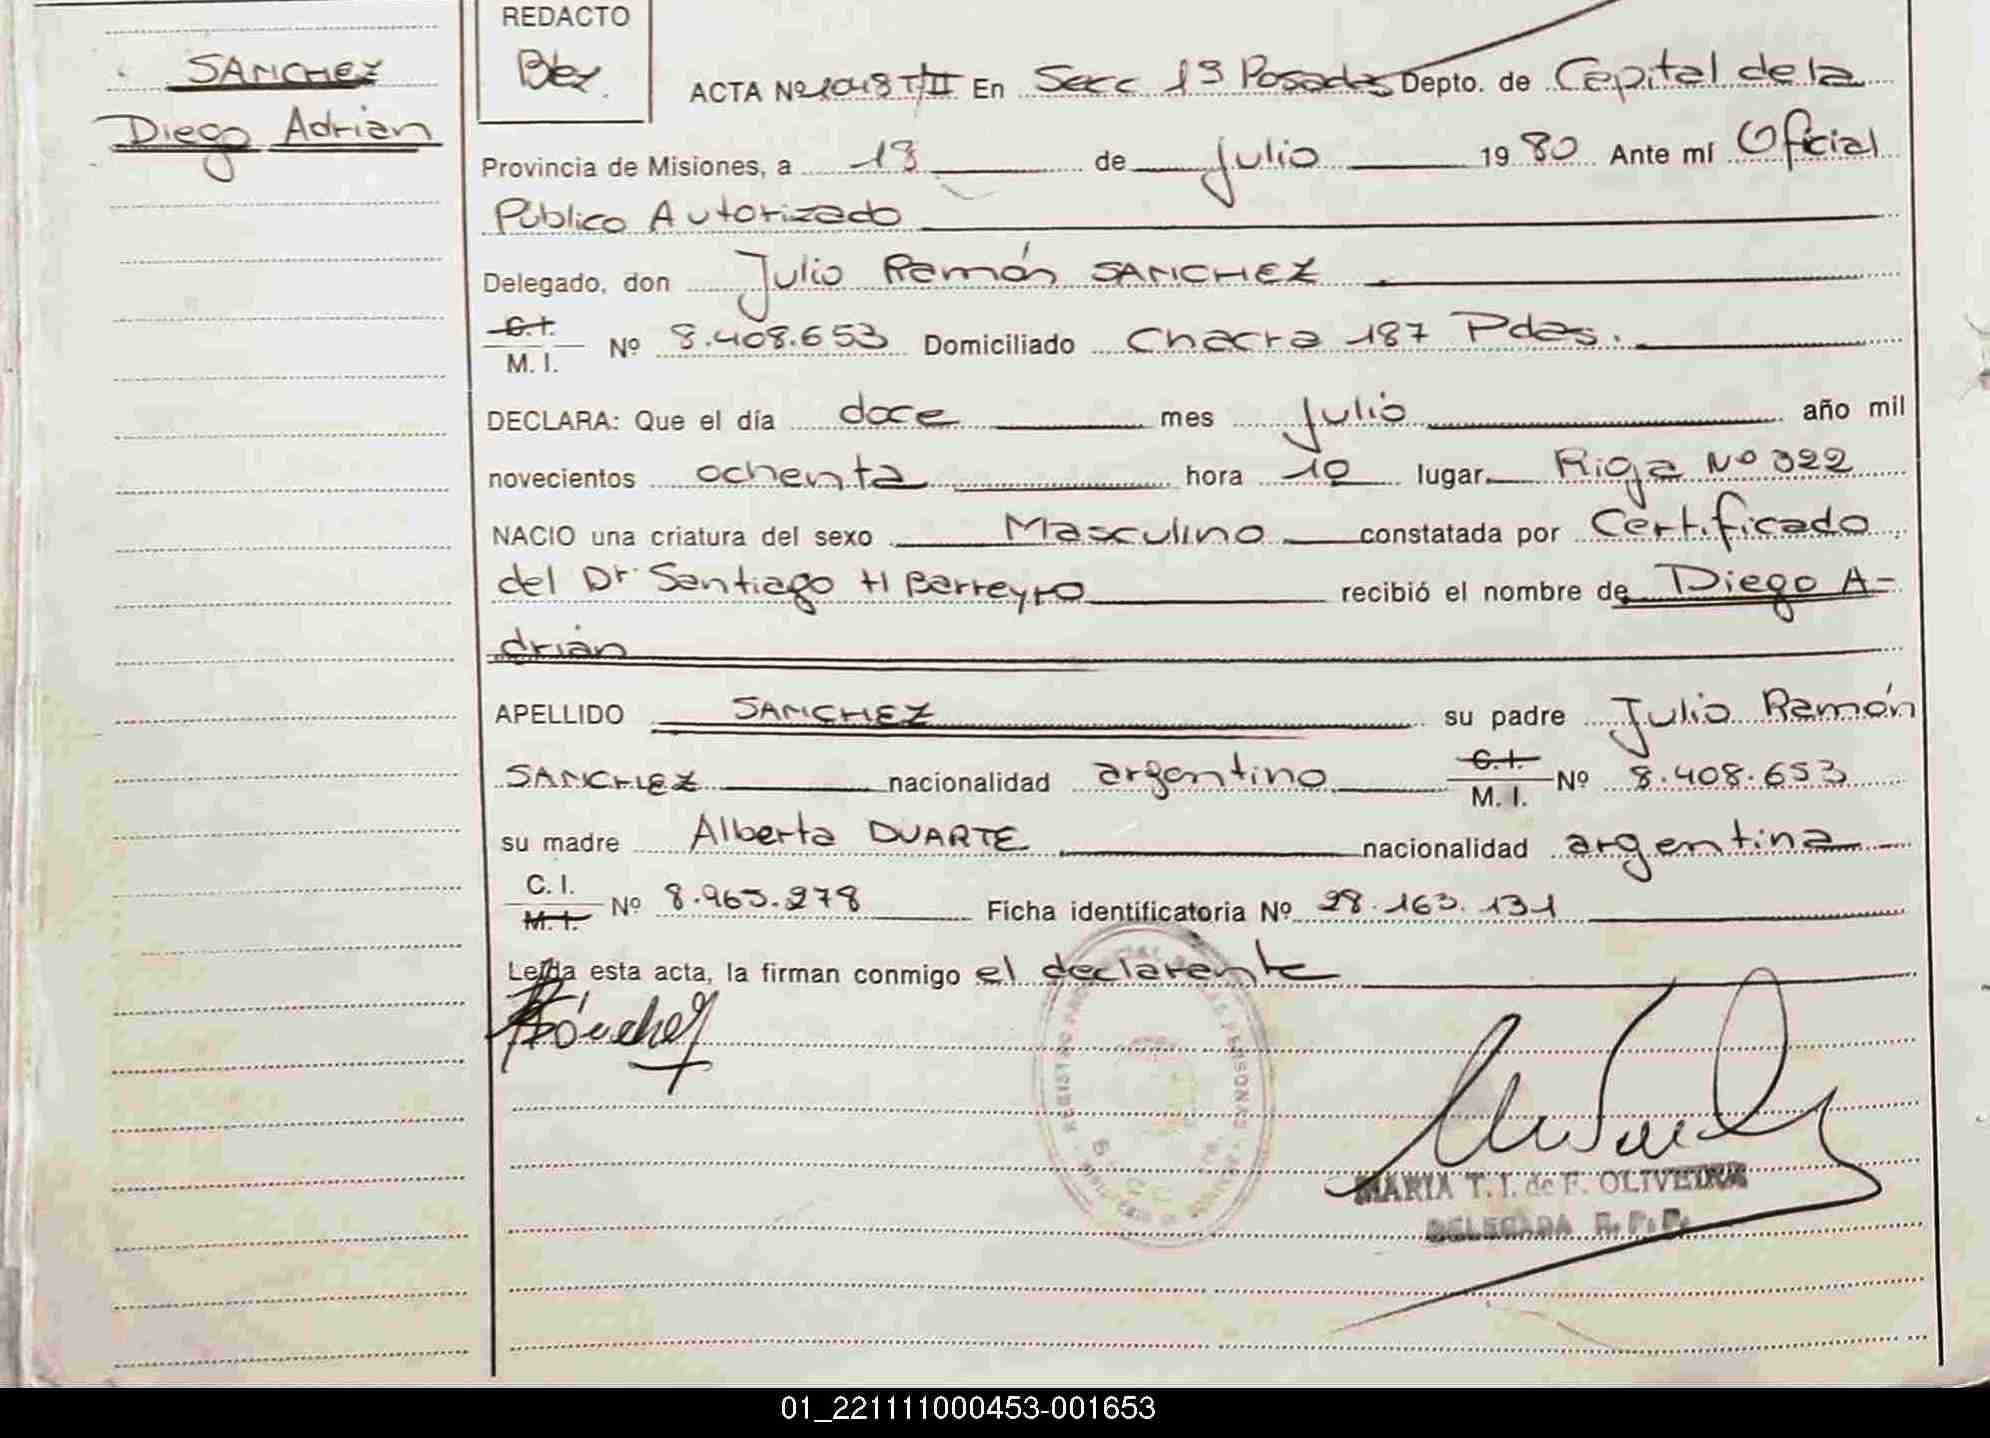 SANCHEZ
Diego Adrián
REDACTO
Bez.
ACTA Nº 1048 T/II En Secc 1ª Posadas Depto. de Capital de la
Provincia de Misiones, a 13 de julio 1980 Ante mí Oficial
Público Autorizado
Delegado, don Julio Ramón SANCHEZ
C.I.
M. I. Nº 8.408.653 Domiciliado Chacra 187 Pdas.
DECLARA: Que el día doce mes julio año mil
novecientos ochenta hora 10 lugar Rioja Nº 322
NACIO una criatura del sexo Masculino constatada por Certificado
del Dr. Santiago H Barreyro recibió el nombre de Diego A-
drián
APELLIDO SANCHEZ su padre Julio Ramón
SANCHEZ nacionalidad argentino C.I. M. I. Nº 8.408.653
su madre Alberta DUARTE nacionalidad argentina
C. I.
M. I. Nº 8.965.278 Ficha identificatoria Nº 28.163.131
Leída esta acta, la firman conmigo el declarante
Sánchez
MARIA T. I. de F. OLIVEIRA
DELEGADA R. P. P.
01_221111000453-001653